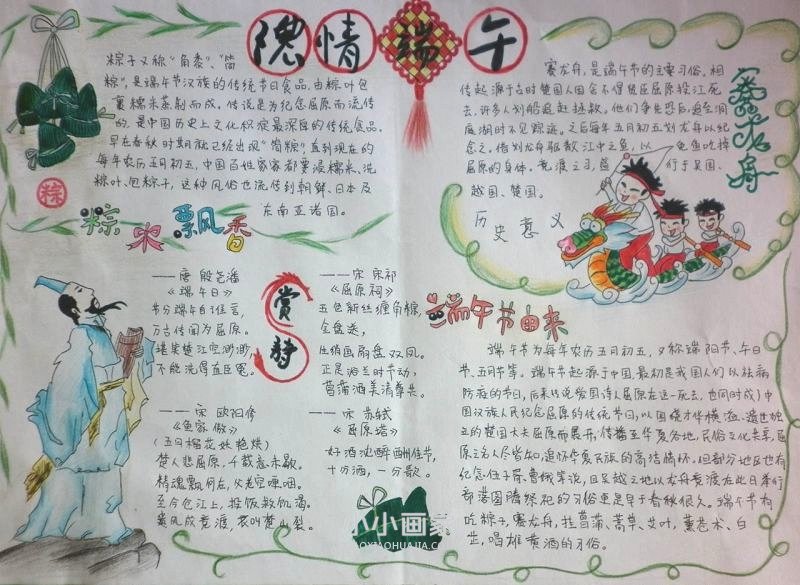 隗情端午
粽子又称“角黍”、“筒
粽”,是端午节汉族的传统节日食品,由粽叶包
裹糯米蒸制而成。传说是为纪念屈原而流传
的,是中国历史上文化积淀最深厚的传统食品。
早在春秋时期就已经出现“筒粽”,直到现在的
每年农历五月初五,中国百姓家家都要浸糯米、洗
粽叶、包粽子,这种风俗也流传到朝鲜、日本及
东南亚诸国。
粽
粽米飘香
赛龙舟,是端午节的主要习俗。相
传起源于古时楚国人因舍不得贤臣屈原投江死
去,许多人划船追赶拯救。他们争先恐后,追至洞
庭湖时不见踪迹。之后每年五月初五划龙舟以纪
念之。借划龙舟驱散江中之鱼,以 鱼吃掉
屈原的身体。竞渡之习,盛 行于吴国、
越国、楚国。
赛龙舟
历史意义
赏诗
——唐 殷尧藩
《端午日》
节分端午自谁言,
万古传闻为屈原。
堪笑楚江空渺渺,
不能洗得直臣冤。
——宋 宋祁
《屈原祠》
五色新丝缠角粽,
金盘送,
生绡画扇盘双凤。
正是浴兰时节动,
菖蒲酒美清尊共。
——宋 欧阳修
《渔家傲》
(五月榴花妖艳烘)
楚人悲屈原,千载意未歇。
精魂飘何在,父老空哽咽。
至今仓江上,投饭救饥渴。
遗风成竞渡,哀叫楚山裂。
——宋 苏轼
《屈原塔》
好酒沈醉酬佳节,
十分酒,一分歌。
端午节由来
端午节为每年农历五月初五,又称端阳节、午日
节、五月节等。端午节起源于中国,最初是我国人们以祛病
防疫的节日,后来传说爱国诗人屈原在这一死去,也同时成了中
国汉族人民纪念屈原的传统节日,以围绕才华横溢、遗世独
立的楚国大夫屈原而展开,传播至华夏各地,民俗文化共享,屈
原之名人尽皆知,追怀华夏民族的高洁情怀。但部分地区也有
纪念伍子胥、曹娥等说,且吴越之地以龙舟竞渡在此日举行
部落图腾祭祀的习俗更是早于春秋很久。端午节有
吃粽子,赛龙舟,挂菖蒲、蒿草、艾叶,薰苍术、白
芷,喝雄黄酒的习俗。
小小画家